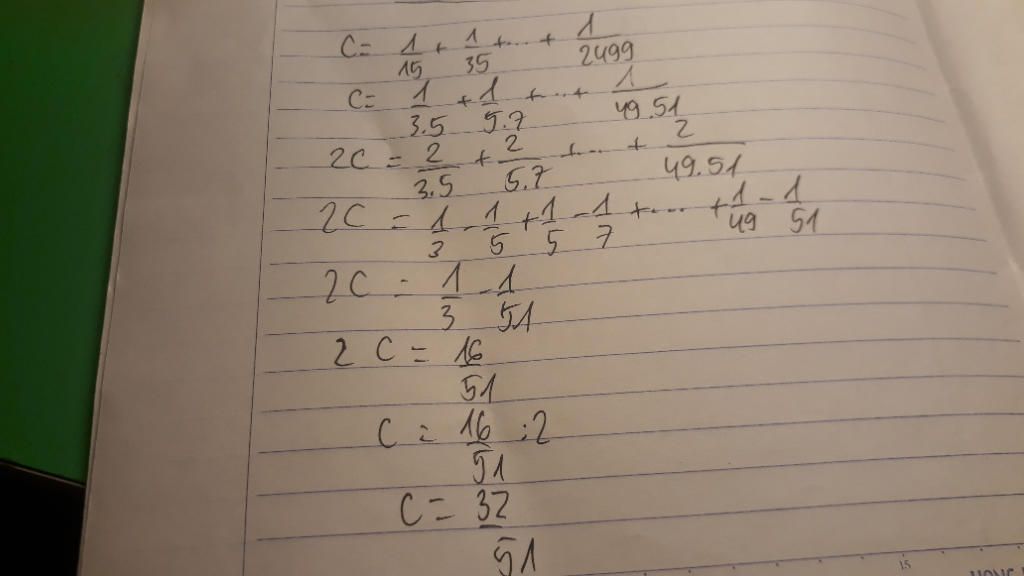 C = 1/15 + 1/35 + ... + 1/2499
C = 1/3.5 + 1/5.7 + ... + 1/49.51
2C = 2/3.5 + 2/5.7 + ... + 2/49.51
2C = 1/3 - 1/5 + 1/5 - 1/7 + ... + 1/49 - 1/51
2C = 1/3 - 1/51
2C = 16/51
C = 16/51 : 2
C = 32/51
15